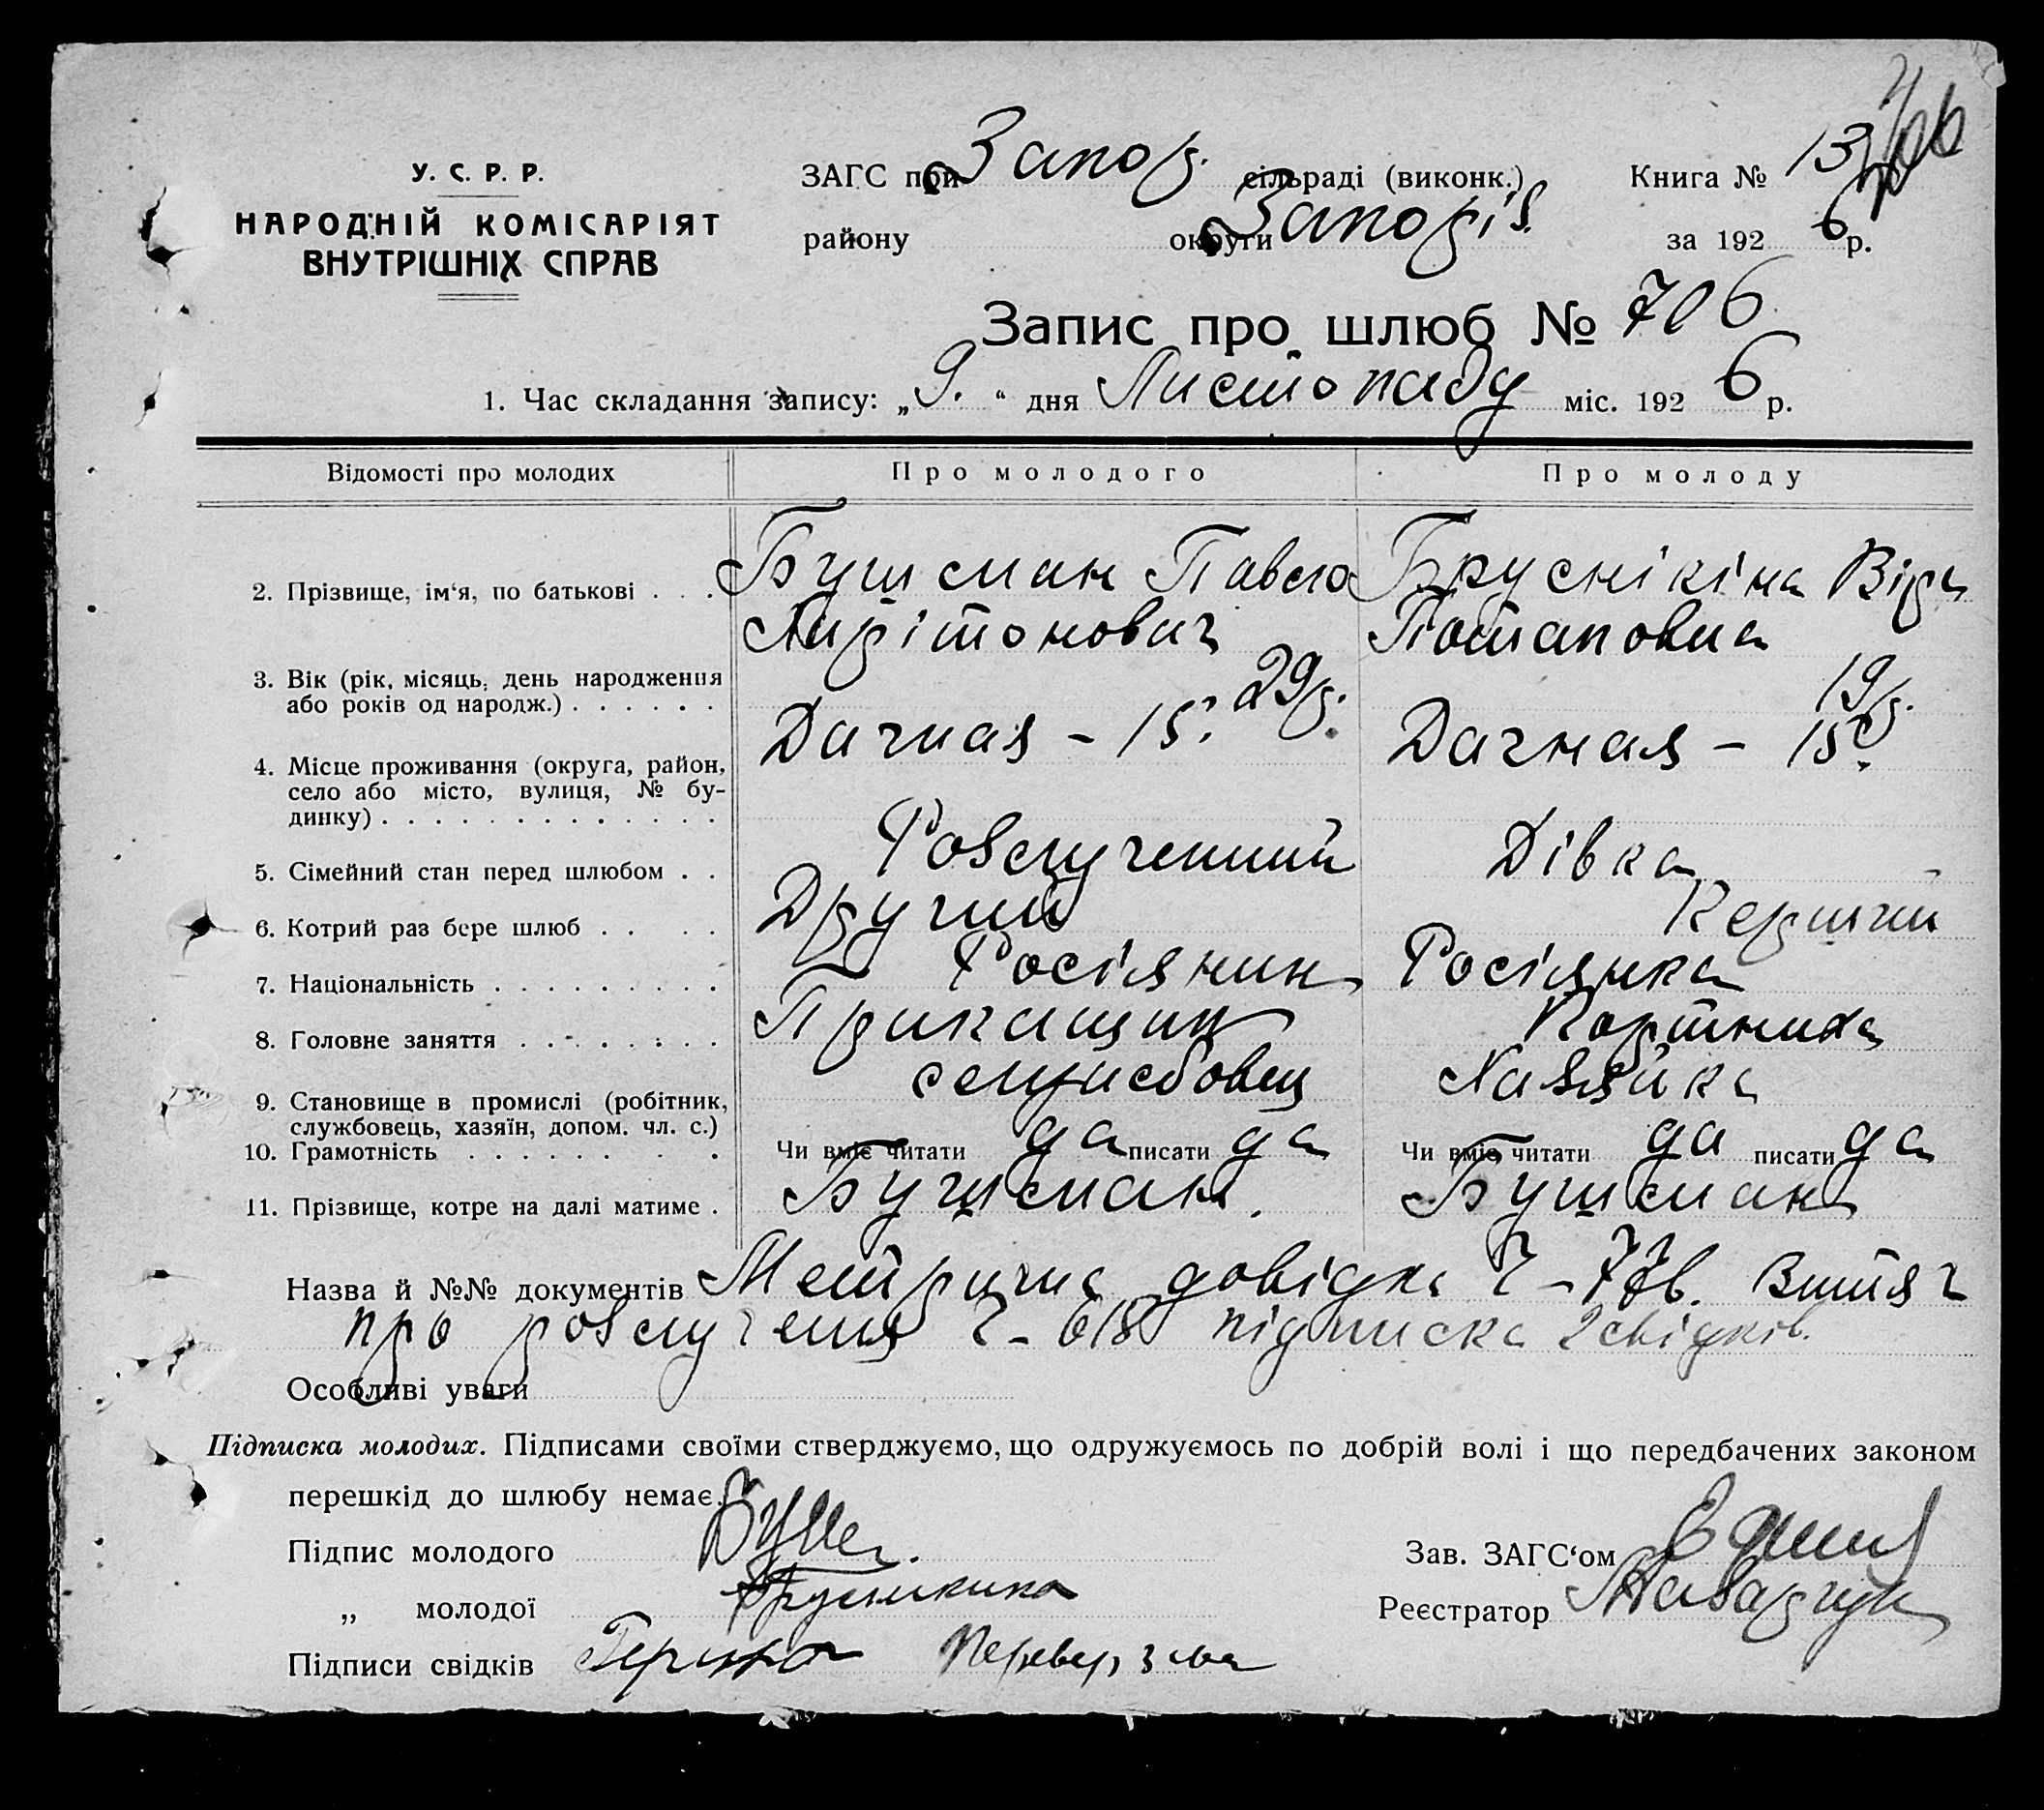 У. С. Р. Р.
НАРОДНІЙ КОМІСАРІЯТ
ВНУТРІШНІХ СПРАВ
ЗАГС при Запор. сільраді (виконк.) Книга № 13
району округи Запоріз. за 1926 р.
Запис про шлюб № 706
1. Час складання запису: „9.“ дня Листопаду міс. 1926 р.
Відомості про молодих Про молодого Про молоду
2. Прізвище, ім‘я, по батькові . . . Бушман Павло Бруснікіна Віра
Потаповна
3. Вік (рік, місяць, день народження
або років од народж.) . . . . . . 29 р. 19 р.
4. Місце проживання (округа, район,
село або місто, вулиця, № бу-
динку) . . . . . . . . . . . . . Дачная – 15. Дачная – 15.
5. Сімейний стан перед шлюбом . . Розлученний Дівка
6. Котрий раз бере шлюб . . . . Другий Перший
7. Національність . . . . . . . . . Росіянин Росіянка
8. Головне заняття . . . . . . . . Прикащик Портниха
9. Становище в промислі (робітник,
службовець, хазяїн, допом. чл. с.) служсбовец Хазяйка
10. Грамотність . . . . . . . . Чи вміє читати да писати да Чи вміє читати да писати да
11. Прізвище, котре на далі матиме . Бушман. Бушман
Назва й №№ документів Метрична довідка Ч – 77в. Витяг
про розлучення Ч – 618 підписка 2 свідків.
Особливі уваги
Підписка молодих. Підписами своїми стверджуємо, що одружуємось по добрій волі і що передбачених законом
перешкід до шлюбу немає.
Підпис молодого Зав. ЗАГС‘ом
„ молодої Брусникина Реєстратор
Підписи свідків